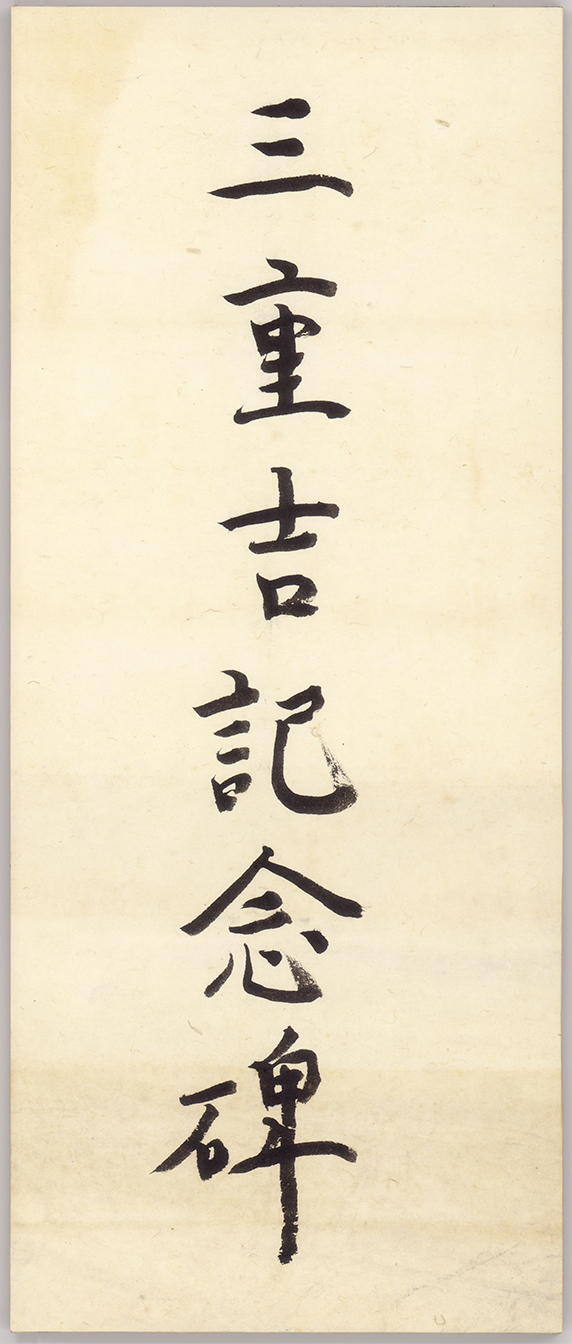 三重吉記念碑